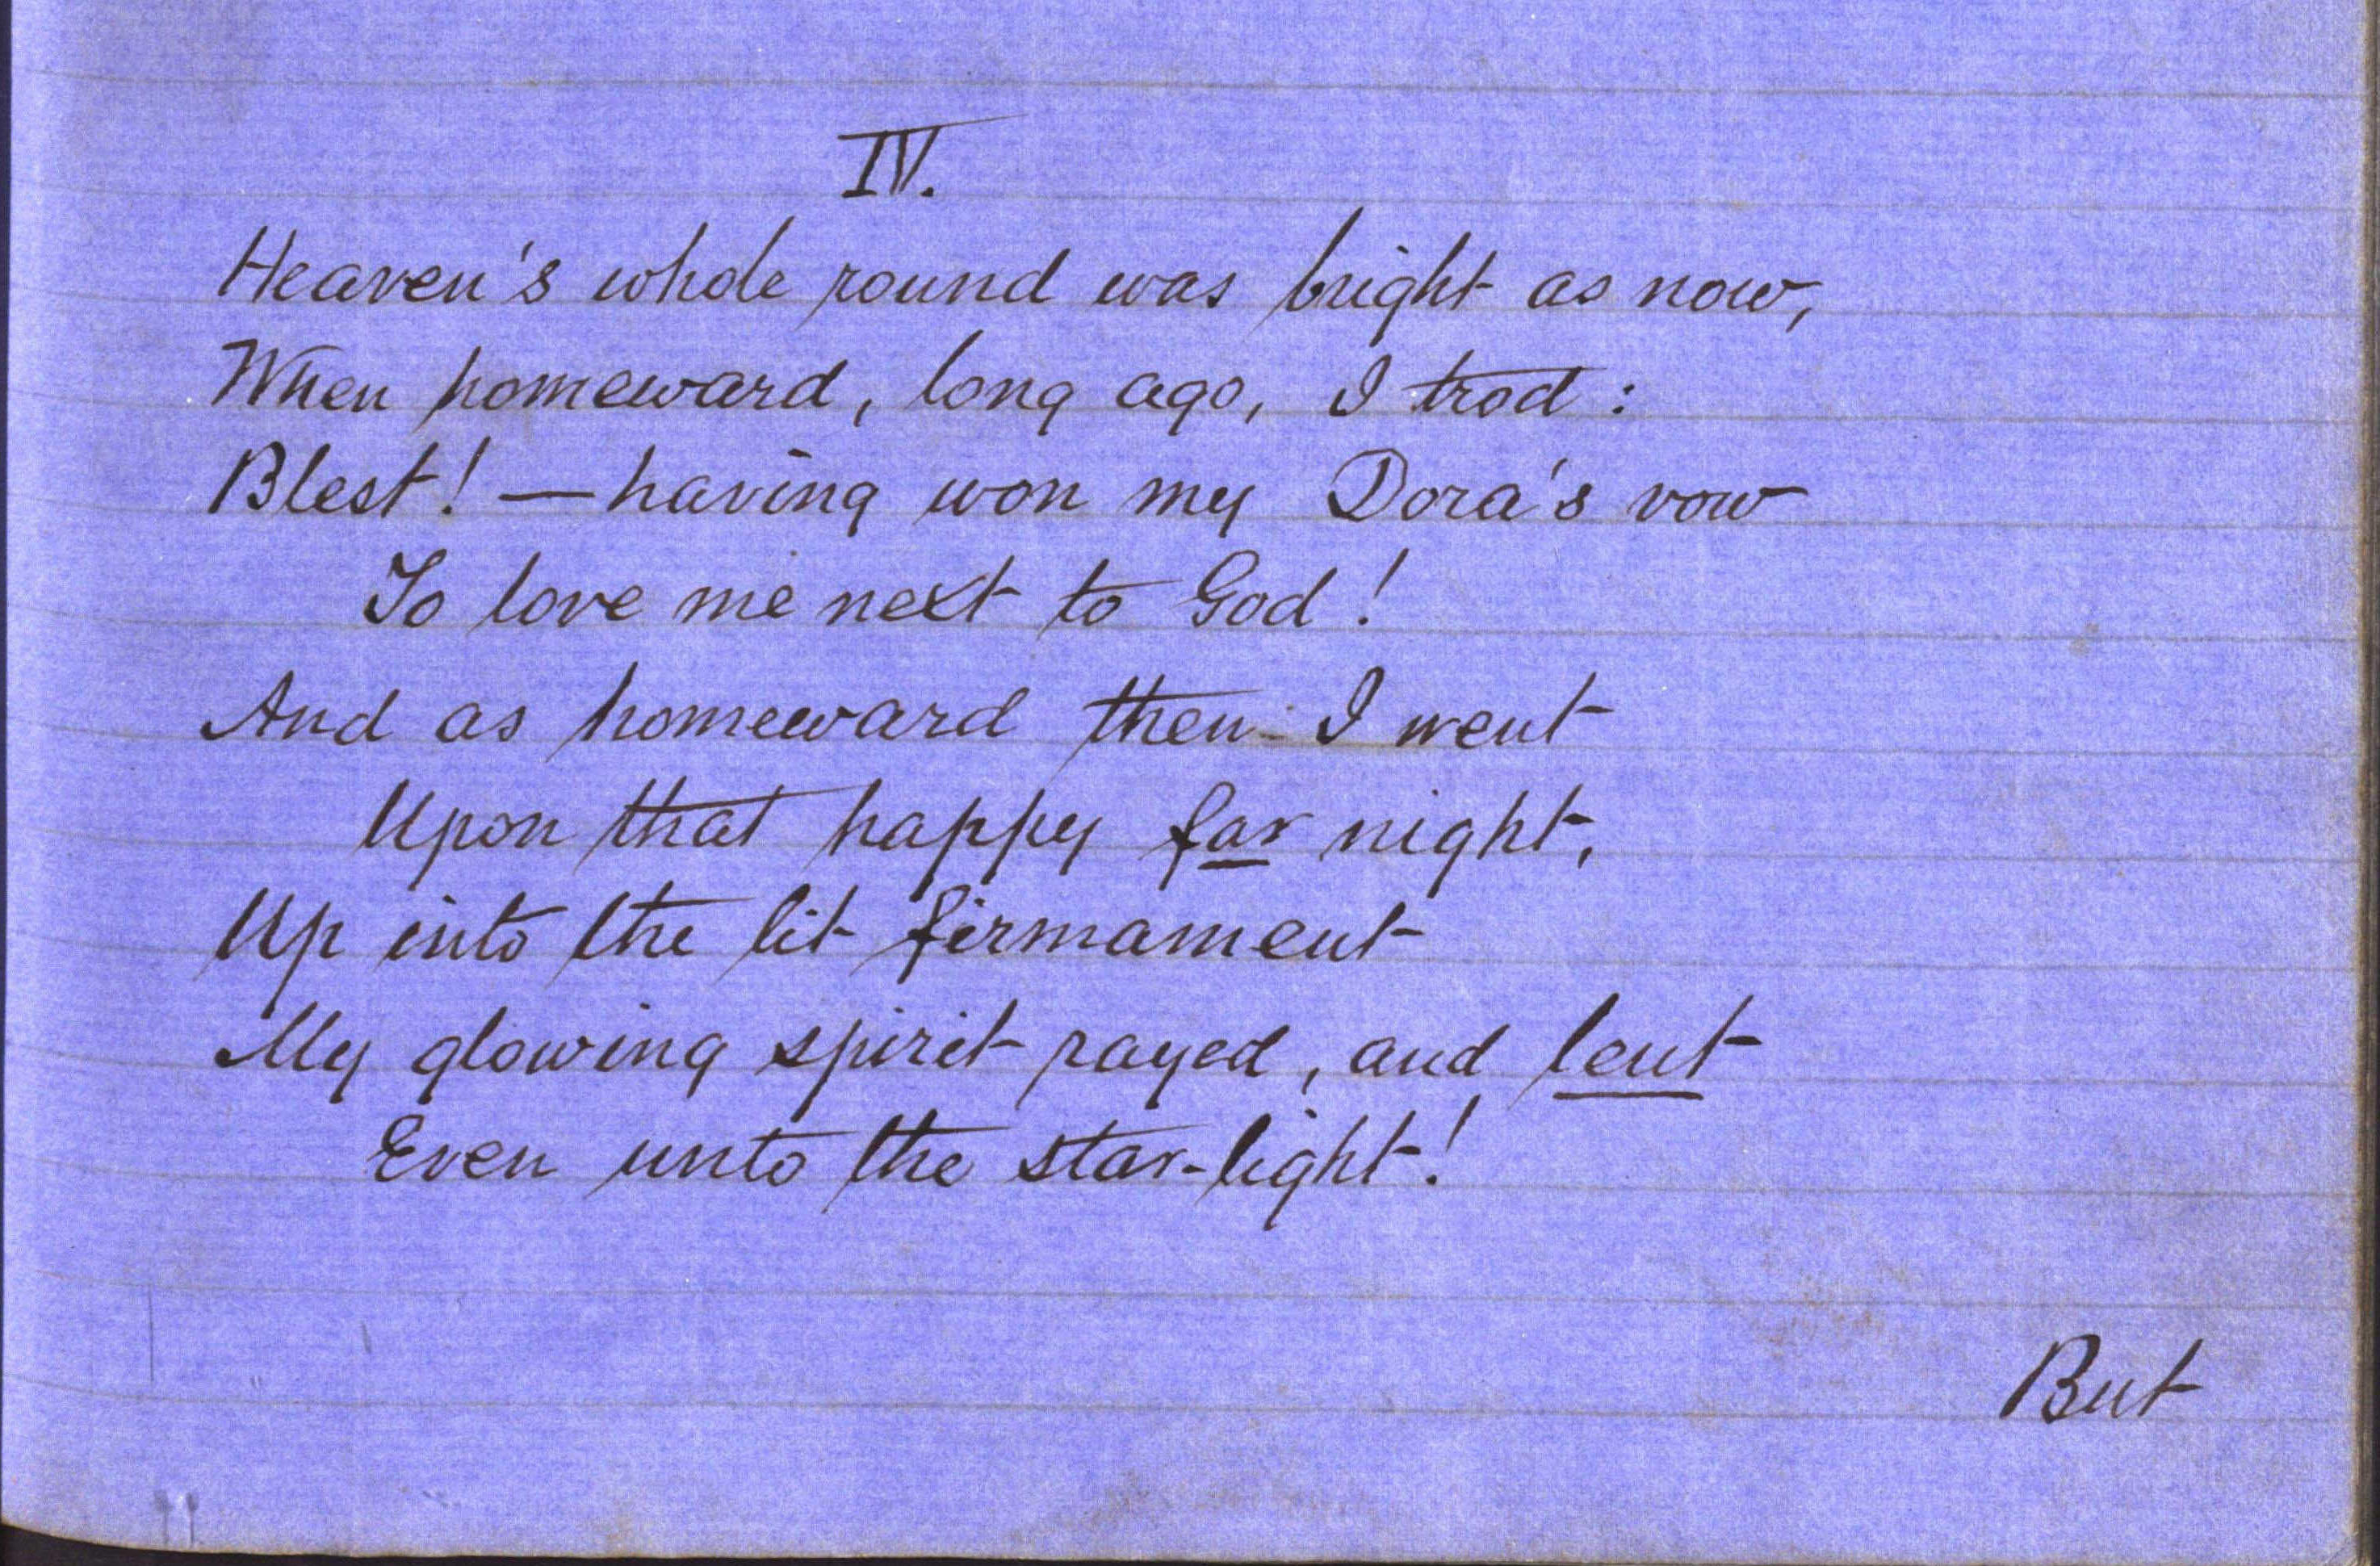 IV.
Heaven's whole round was bright as now,
When homeward, long ago, I trod:
Blest! — having won my Dora's vow
To love me next to God!
And as homeward then I went
Upon that happy far night,
Up into the lit firmament
My glowing spirit rayed, and lent
Even unto the star-light!
But